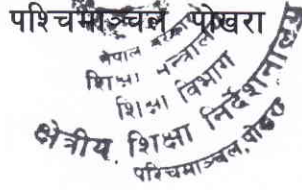 पश्चिमाञ्चल पोखरा
नेपाल सरकार
शिक्षा मन्त्रालय
शिक्षा विभाग
क्षेत्रीय शिक्षा निर्देशनालय
पश्चिमाञ्चल, पोखरा